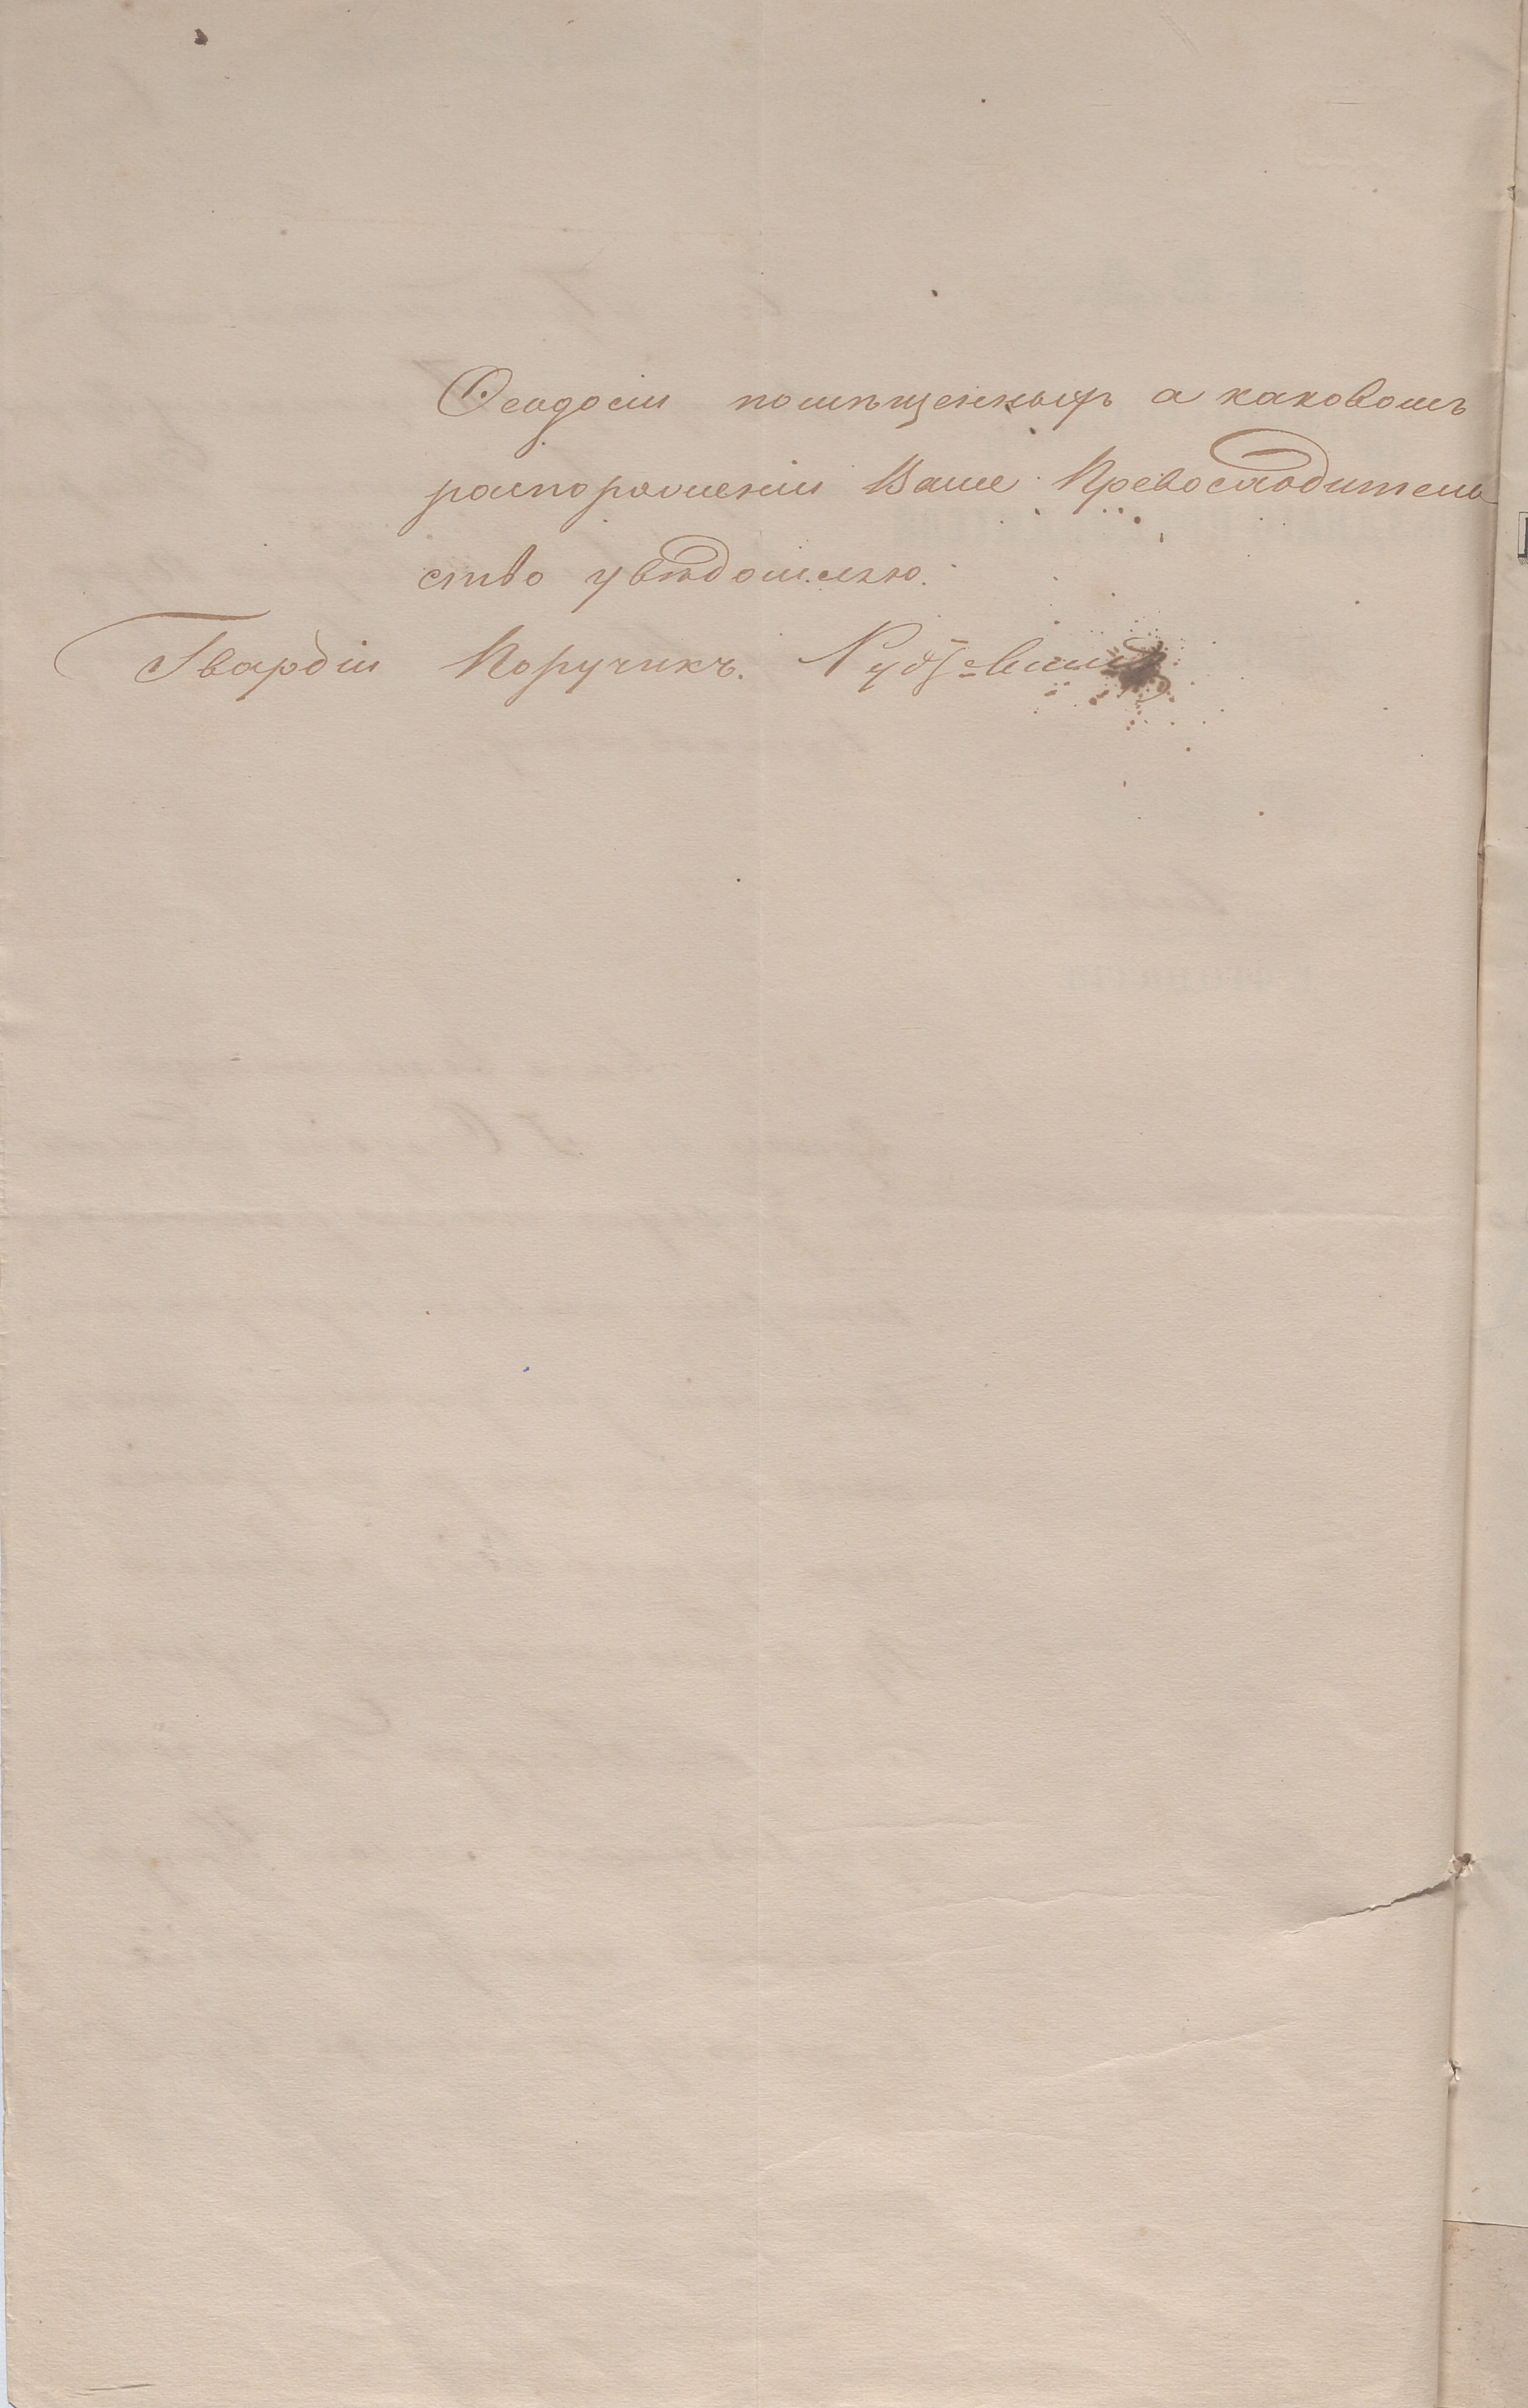 Ѳеодосіи помѣщенныхъ а каковомъ
распоряженіи Ваше Превосходитель
ство увѣдомляю.
Гвардіи Поручикъ.